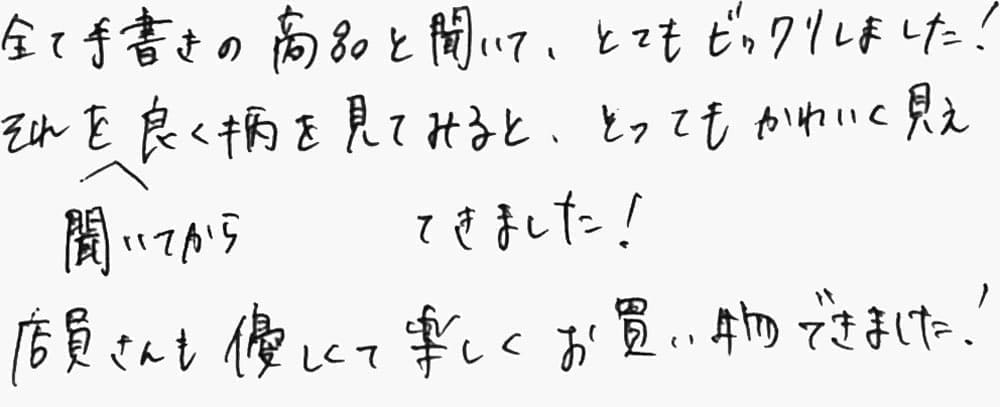 全て手書きの商品と聞いて、とてもビックリしました!
それを良く柄を見てみると、とってもかわいく見え
聞いてから てきました!
店員さんも優しくて楽しくお買い物できました!